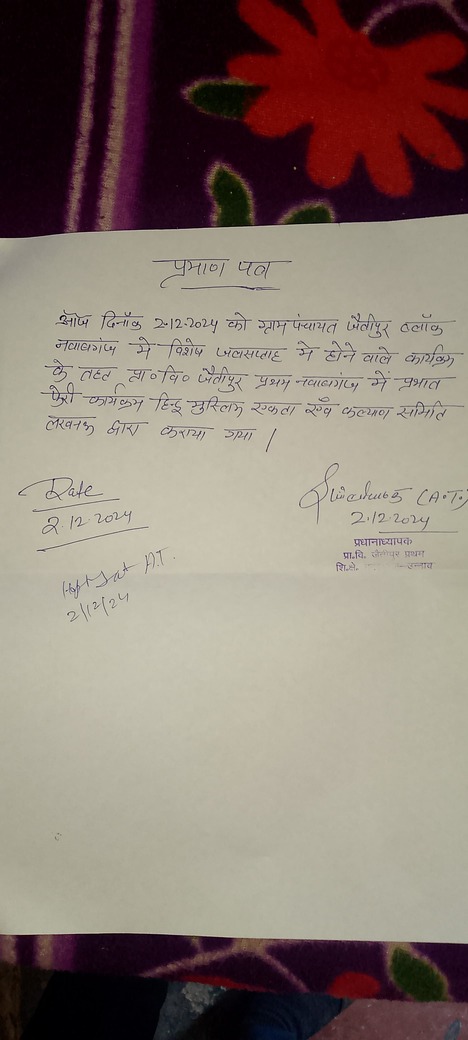 प्रमाण पत्र
आज दिनाँक 2.12.2024 को ग्राम पंचायत जैतीपुर ब्लॉक
नवाबगंज मे विशेष जलसप्ताह मे होने वाले कार्यक्रम
के तहत प्रा०वि० जैतीपुर प्रथम नवाबगंज में प्रभात
फेरी कार्यक्रम हिन्दू मुस्लिम एकता एवँ कल्याण समिति
लखनऊ द्वारा कराया गया |
Date
2.12.2024
(A.T.)
2.12.2024
प्रधानाध्यापक
प्रा.वि. जैतीपुर प्रथम
शि.क्षे. उन्नाव
A.T.
2/12/24